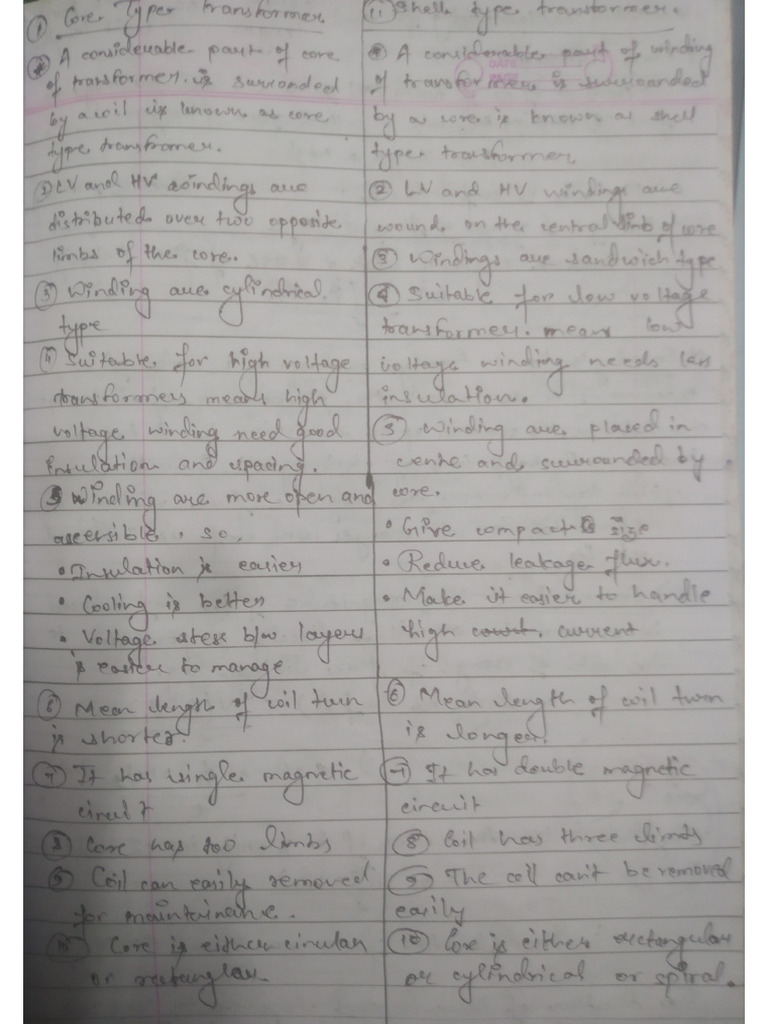 ① Core Types transformer.
① A considerable part of core
of transformer is surrounded
by a coil is known as core
type transfromer.
② LV and HV windings are
distributed over two opposite
limbs of the core.
③ Winding are cylindrical
type
④ Suitable for high voltage
transformers means high
voltage winding need good
insulation and spacing.
5 Winding are more open and
, so,
• Insulation is easier
• Cooling is better
• Voltage stess b/w layers
is easier to manage
⑥ Mean length of coil turn
is shorter.
⑦ It has single magnetic
circuit
⑧ Core has too limbs
⑨ Coil can easily removed
for
⑩ Core is either
or
(ii) Shell type transformer.
① A considerable part of winding
of transformer is surrounded
DATE
by a core is known a shell
type transformer
② LV and HV windings are
wound on the central limb of core
③ Windings are sandwich type
④ Suitable for low voltage
transformer. means low
voltage winding needs less
insulation.
⑤ Winding are placed in
centre and surrounded by
core.
• Give compact size
• Reduce leakage flux.
• Make it easier to handle
high current
⑥ Mean length of coil turn
is longer.
⑦ It has double magnetic
circuit
⑧ Coil has three limbs
⑨ The coil can't be removed
easily
⑩ Core is either rectangular
or cylindrical or spiral.